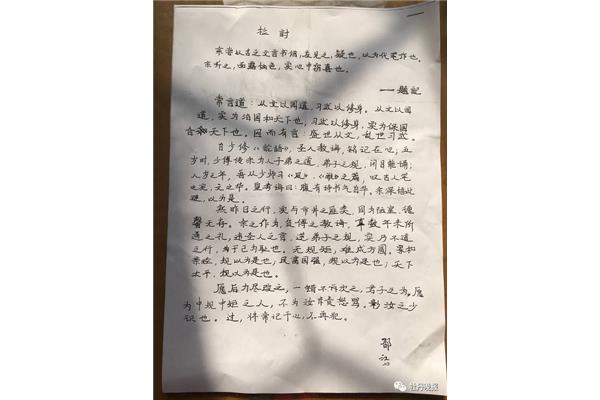 检讨
余尝以古之文言书烟，左见之，疑也，以为代笔作也。
余听之，面露仙色，实心中窃喜也。
——题记
常言道：从文以国道，习武以修身。从文以国
道，实为治国和天下也，习武以修身，实为保国
合和天下也。因而有言：盛世从文，乱世习武。
自少修《论语》，圣人教诲，铭记在心；五
岁时，少傅传余为人子弟之道，弟子之规，闭目能诵；
八岁之年，每从少师习《风》，《雅》之篇，叹古人笔
之定，文之华。皇考诲曰：腹有诗书气自华。余深悟此
理，以为是。
然昨日之行，实与市井之匹类，同为陋室，德
馨无存。余之作为，负傅之教诲，事数年来所
通之礼，违圣人之言，逆弟子之规，实乃不道
之行，为予已为耻也。无规矩，难成方圆。家和
亲睦，规以为是也；民富国强，规以为是也；天下
太平，规以为是也。
愿后力尽改之，一错不诉次之，君子之为。愿
为中规中矩之人，不为汝肯责怒骂。彰汝之少
识也。过，将常记于心，不再犯。
邵江
牡丹晚报